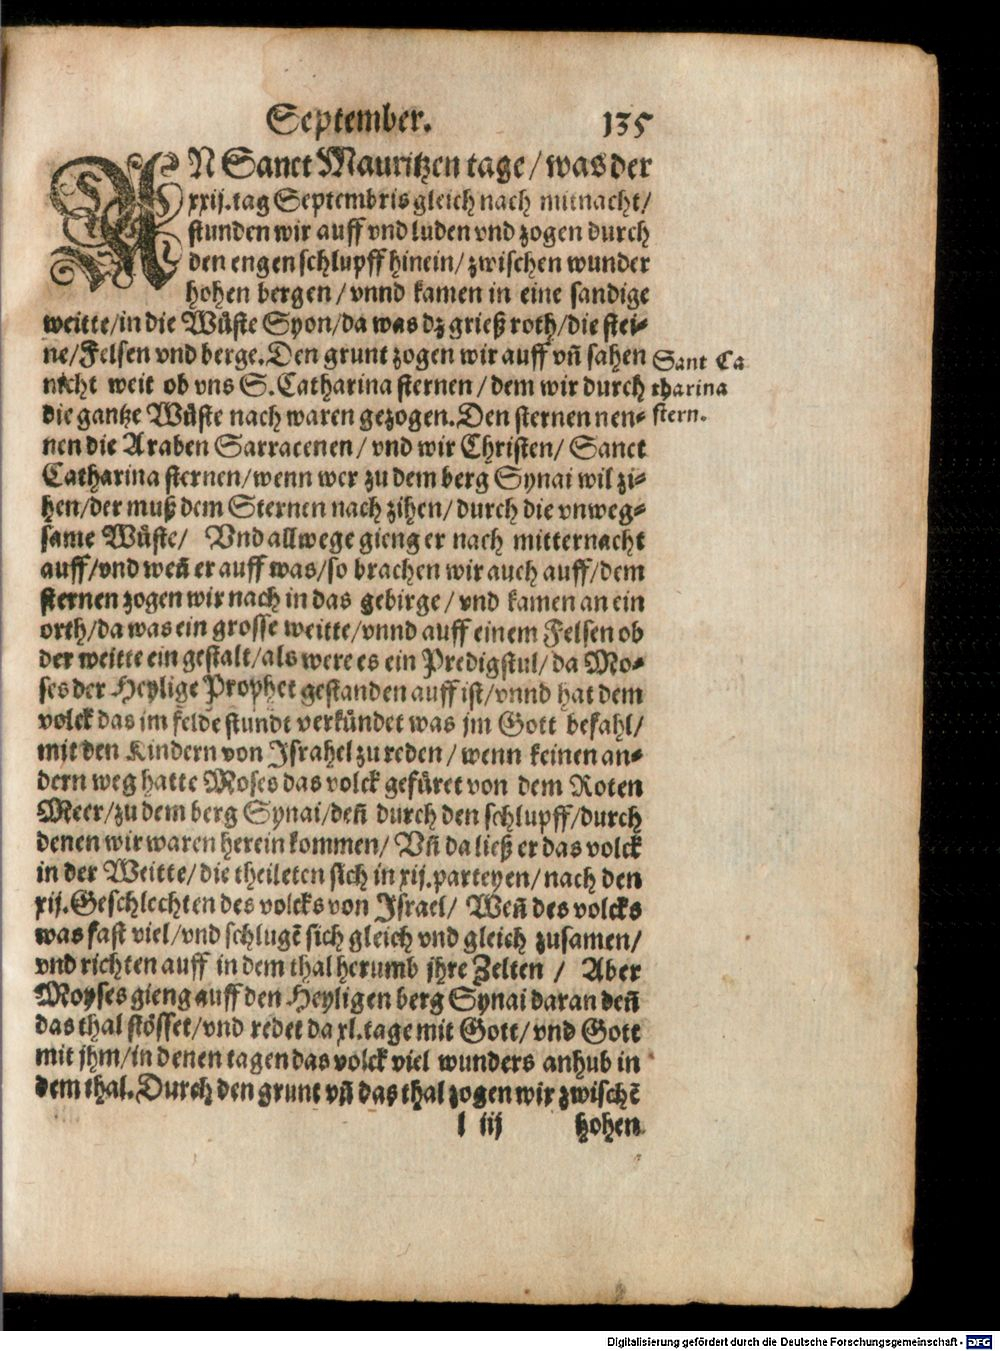 September. 135
AN Sanct Mauritzen tage / was der
xxij. tag Septembris gleich nach mitnacht /
stunden wir auff vnd luden vnd zogen durch
den engen schlupff hinein / zwischen wunder
hohen bergen / vnnd kamen in eine sandige
weitte / in die Wüste Syon / da was dz grieß roth / die stei⸗
ne / Felsen vnd berge. Den grunt zogen wir auff vñ sahen
nicht weit ob vns S. Catharina sternen / dem wir durch
die gantze Wüste nach waren gezogen. Den sternen nen⸗
nen die Araben Sarracenen / vnd wir Christen / Sanct
Catharina sternen / wenn wer zu dem berg Synai wil zi⸗
hen / der muß dem Sternen nach zihen / durch die vnweg⸗
same Wüste / Vnd allwege gieng er nach mitternacht
auff / vnd weñ er auff was / so brachen wir auch auff / dem
sternen zogen wir nach in das gebirge / vnd kamen an ein
orth / da was ein grosse weitte / vnnd auff einem Felsen ob
der weitte ein gestalt / als were es ein Predigstul / da Mo⸗
ses der Heylige Prophet gestanden auff ist / vnnd hat dem
volck das im felde stundt verkündet was jm Gott befahl /
mit den Kindern von Israhel zu reden / wenn keinen an⸗
dern weg hatte Moses das volck gefüret von dem Roten
Meer / zu dem berg Synai / deñ durch den schlupff / durch
denen wir waren herein kommen / Vñ da ließ er das volck
in der Weitte / die theileten sich in xij. parteyen / nach den
xij. Geschlechten des volcks von Israel / Weñ des volcks
was fast viel / vnd schlugẽ sich gleich vnd gleich zusamen /
vnd richten auff in dem thal herumb jhre Zelten / Aber
Moyses gieng auff den Heyligen berg Synai daran deñ
das thal stösset / vnd redet da xl. tage mit Gott / vnd Gott
mit jhm / in denen tagen das volck viel wunders anhub in
dem thal. Durch den grunt vñ das thal zogen wir zwischẽ
l iij hohen
Sant Ca
tharina
stern.
Digitalisierung gefördert durch die Deutsche Forschungsgemeinschaft - DFG